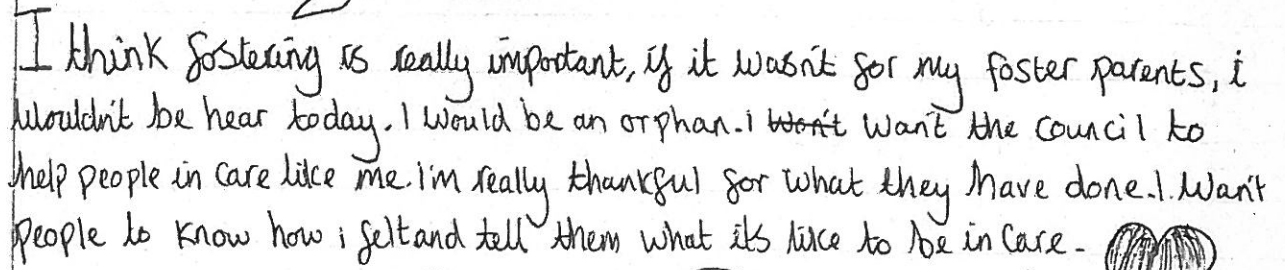 I think fostering is really important, if it wasn't for my foster parents, i
wouldn't be hear today. I would be an orphan. i won't wan't the council to
help people in care like me. I'm really thankful for what they have done. I. wan't
people to know how i felt and tell them what its like to be in care -